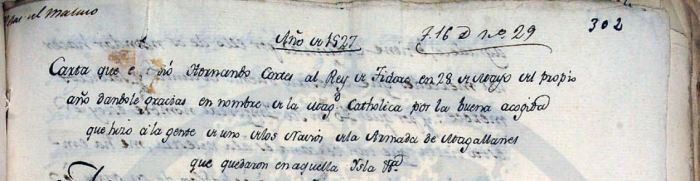 el Maluco
Año de 1527
F. 16 D nº 29
302
Carta que escrivió Hernando Cortes al Rey de Tidore en 28 de Mayo del propio
año dandole gracias en nombre de la Magd. Catholica por la buena acogida
que hizo á la gente de uno de los Navios de la Armada de Magallanes
que quedaron en aquella Ysla &ª